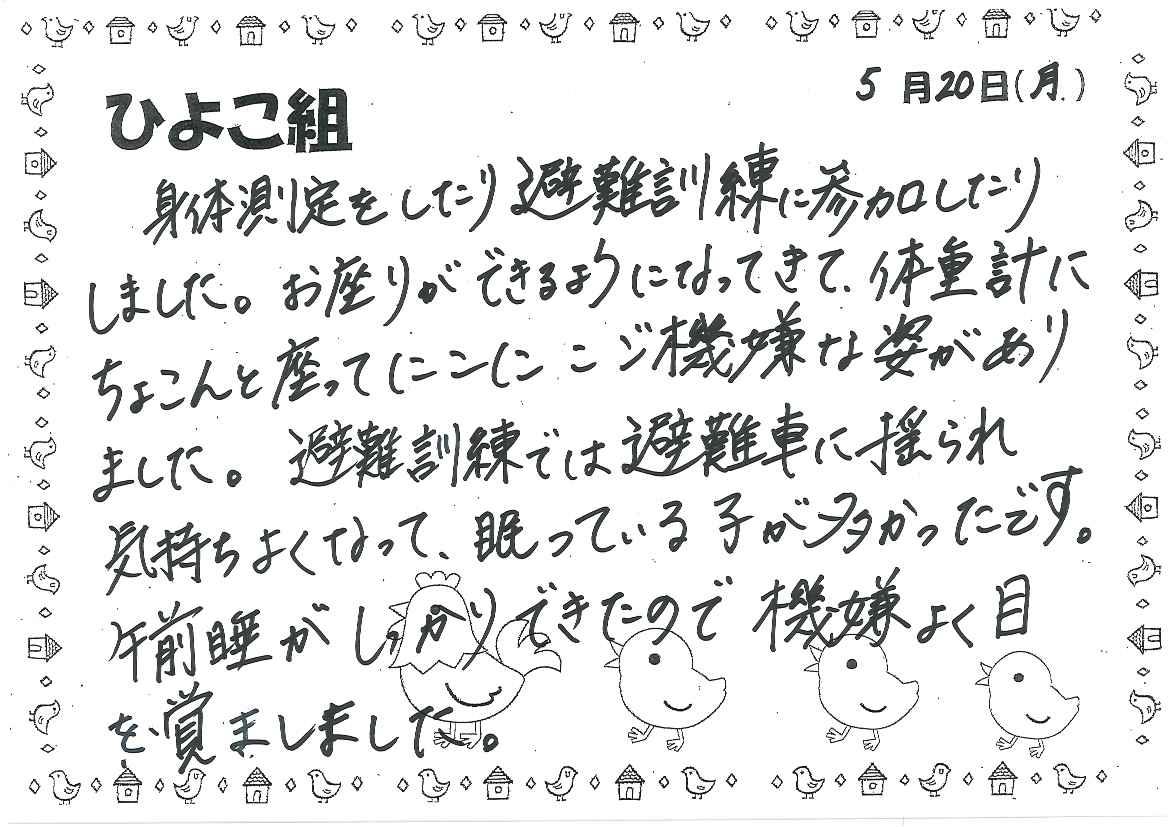 5月20日(月)
ひよこ組
身体測定をしたり避難訓練に参加したり
しました。お座りができるようになってきて、体重計に
ちょこんと座ってニコニコご機嫌な姿があり
ました。避難訓練では避難車に揺られ
気持ちよくなって、眠っている子が多かったです。
午前睡がしっかりできたので機嫌よく目
を覚ましました。